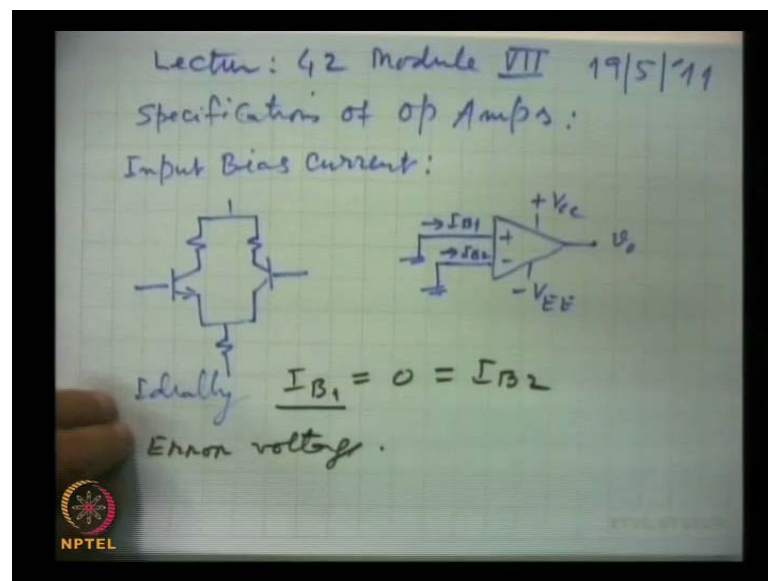 Lectur: 42 Module VII 19/5/'11
Specifications of Op Amps:
Input Bias Current:
+VCC
→IB1
+
→IB2
-
vo
-VEE
Ideally IB1 = 0 = IB2
Error voltage.
NPTEL